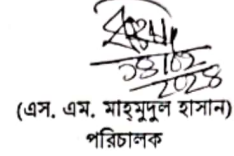 ২০২৪
(এস. এম. মাহমুদুল হাসান)
পরিচালক